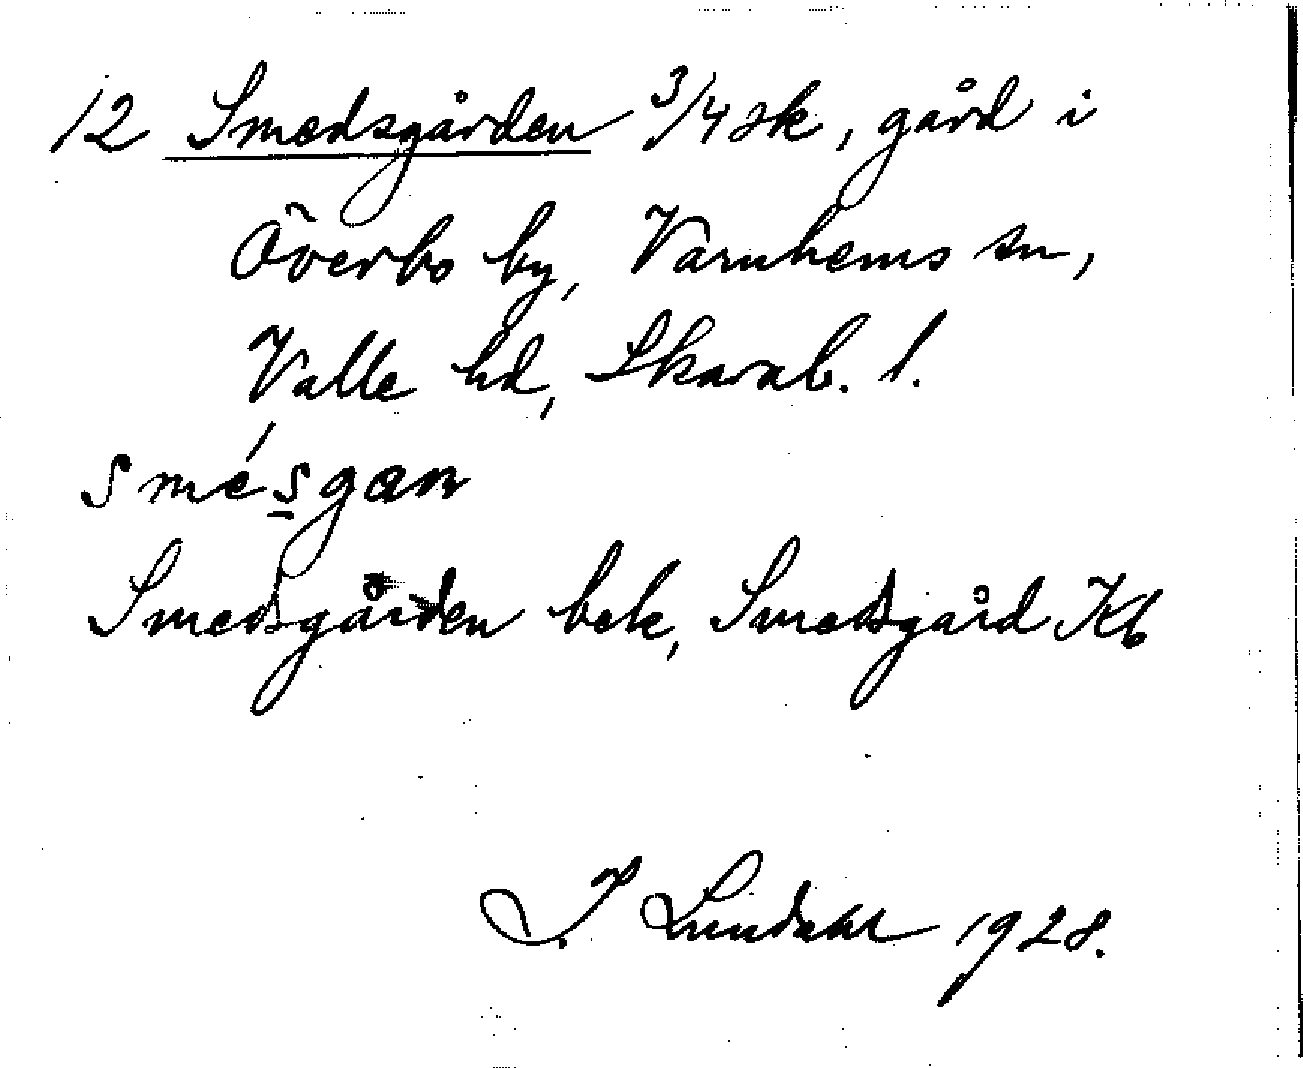 12 Smedsgården 3/4 sk, gård i
Överbo by, Varnhems sn,
Valle hd, Skarab. l.
smésgan
Smedsgården bek, Smedsgård Kb
1928.